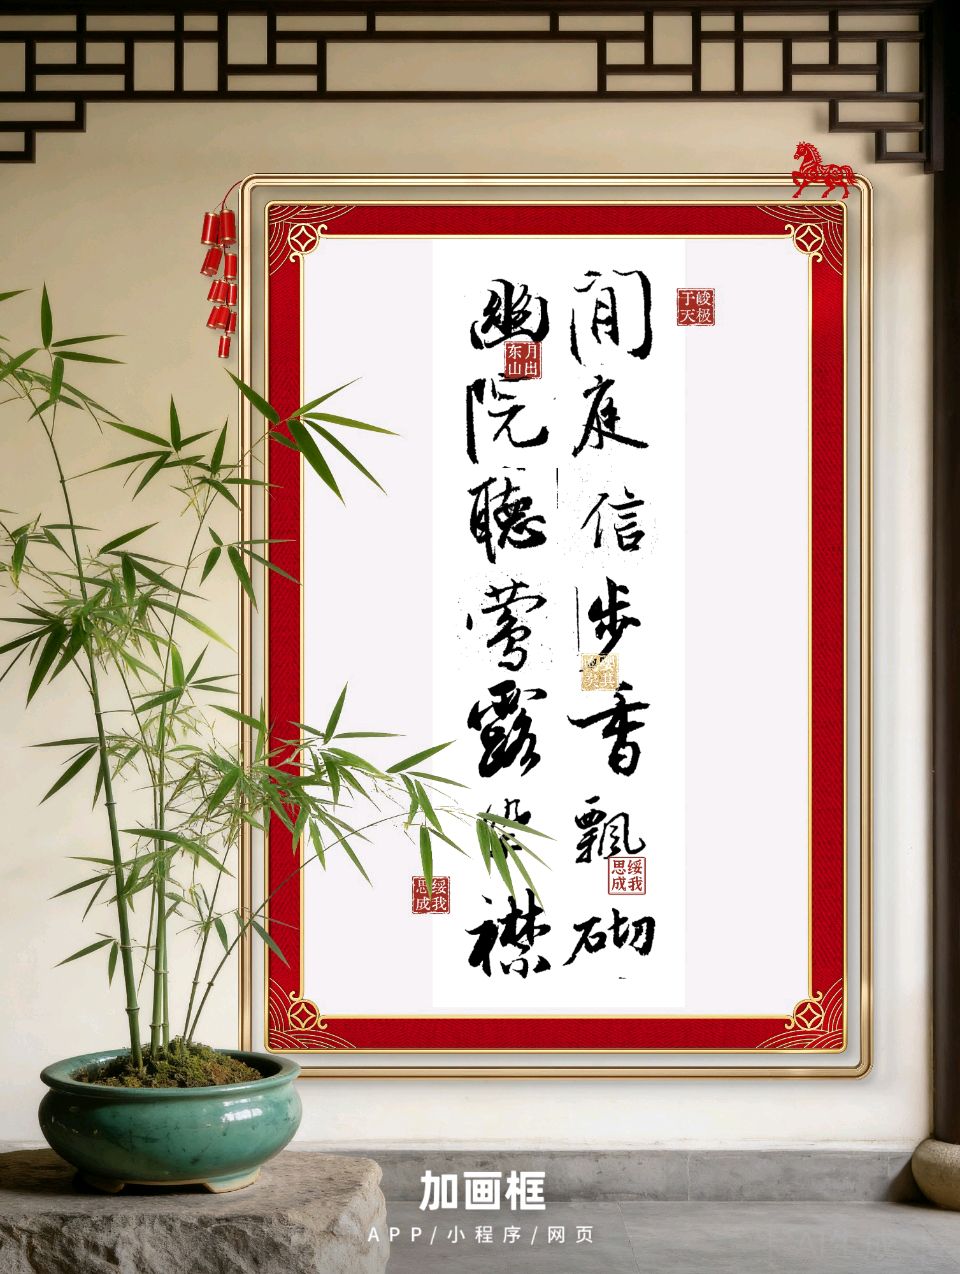 閒庭信步香飄砌
幽院聽鶯露染襟
峻极于天
月出东山
绥我思成
绥我思成
加画框
APP/小程序/网页